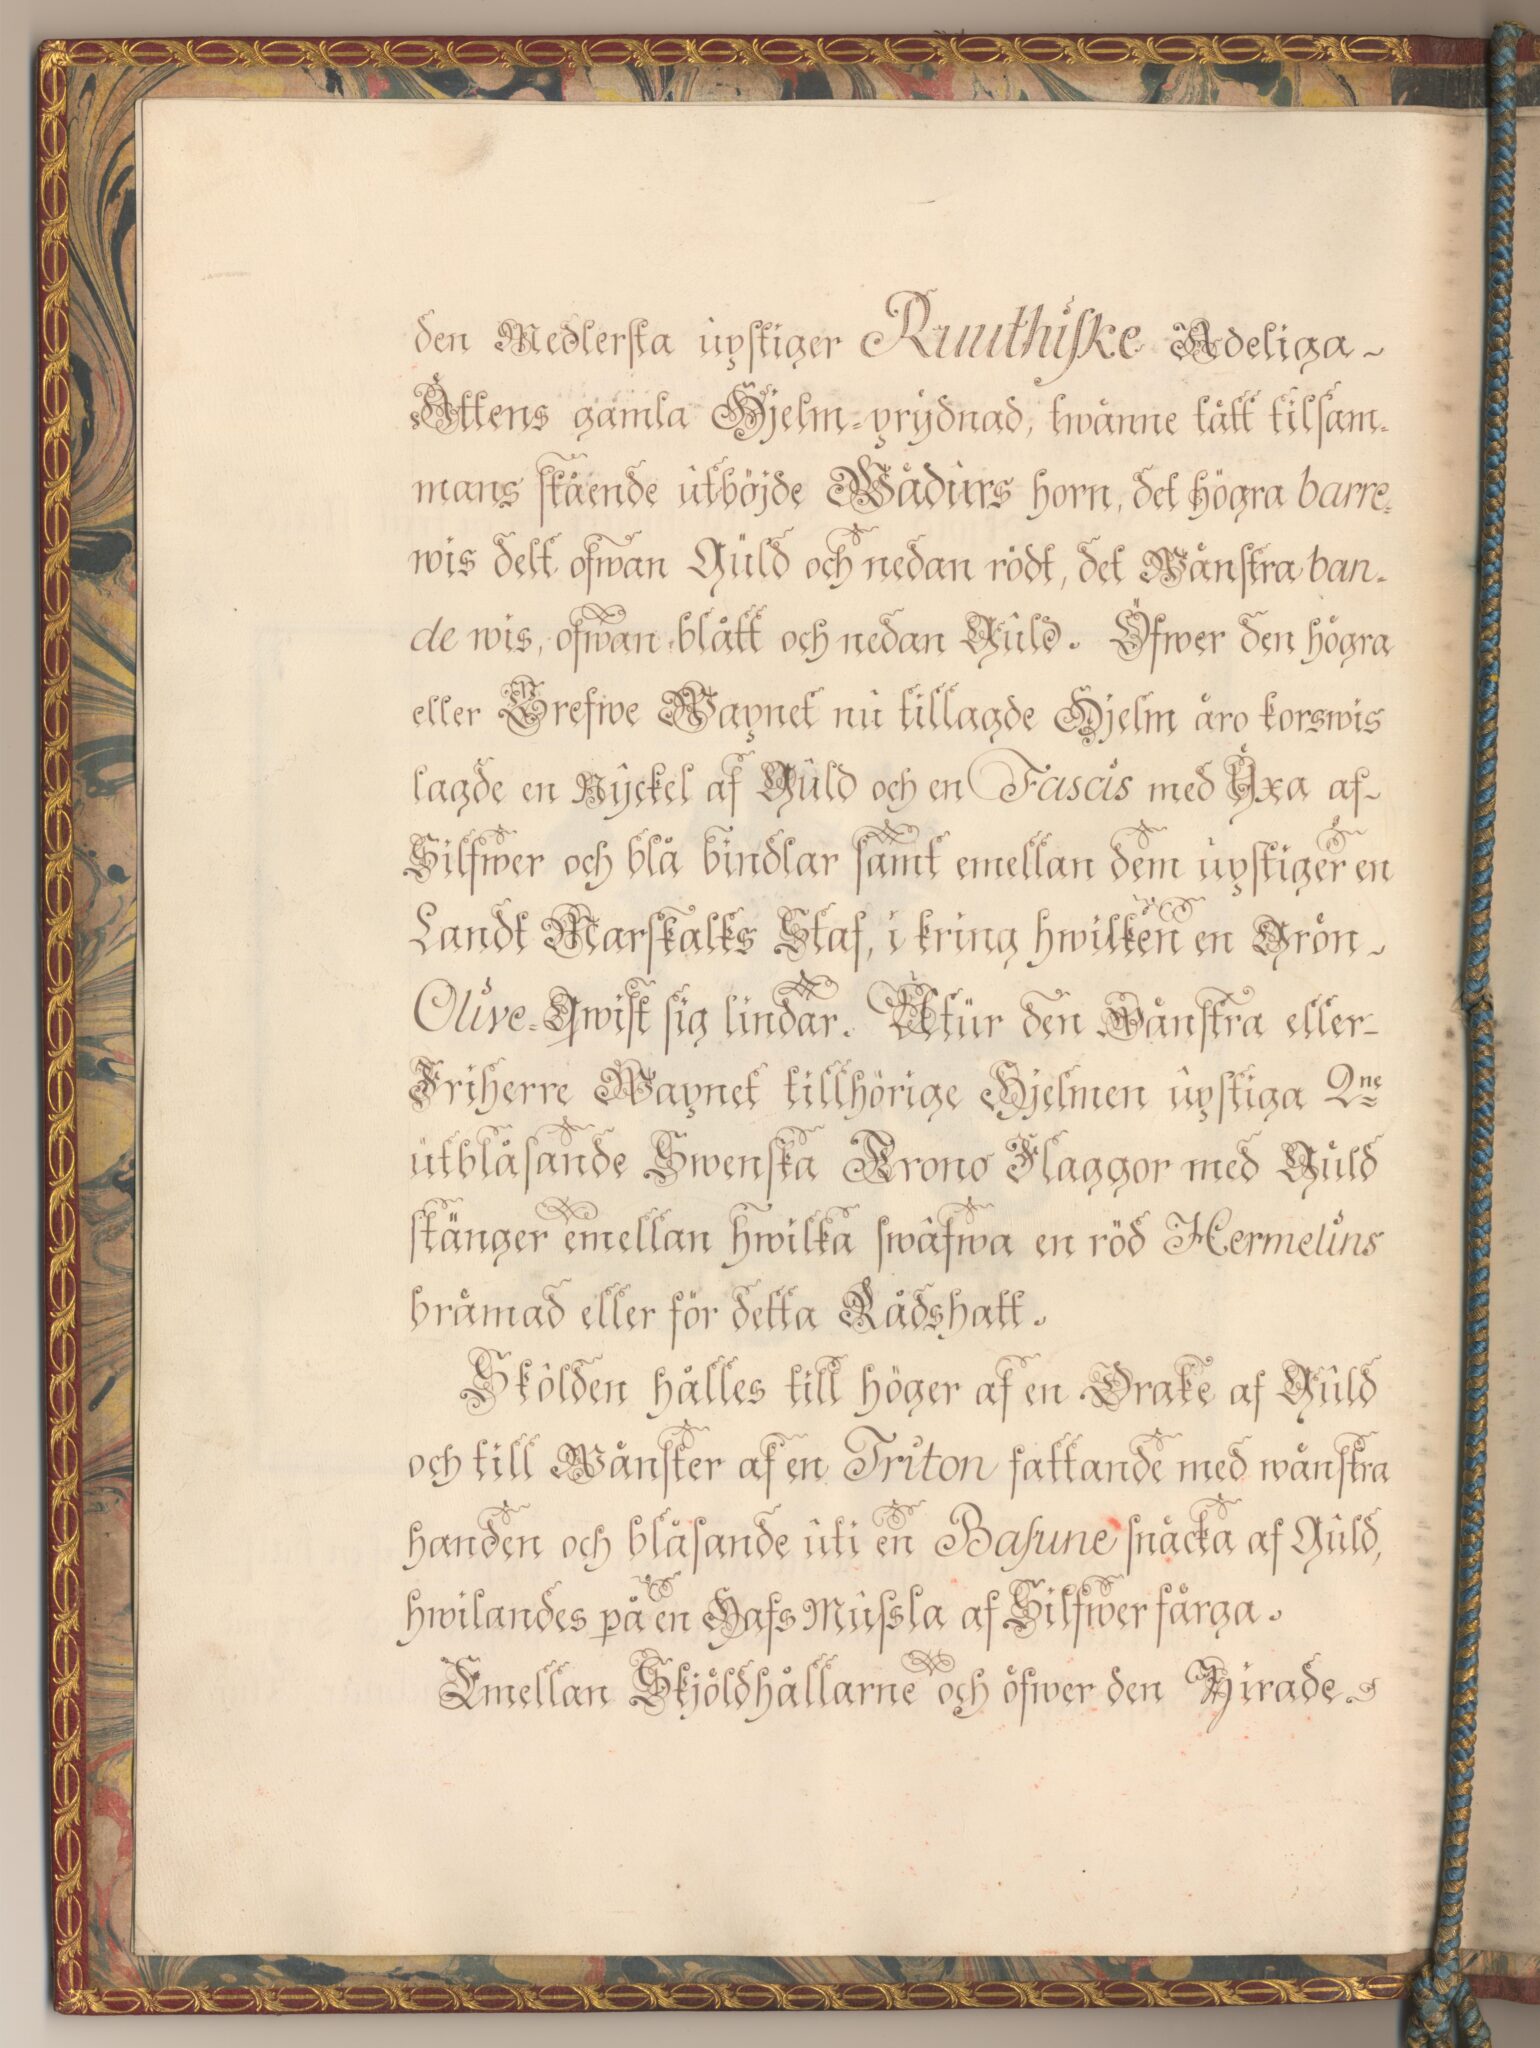 den Medlersta upstiger Ruuthiske Adeliga
Ättens gamla Hjelm-prydnad, twänne tätt tilsam-
mans stående utböjde Wådurs horn, det högra barre-
wis delt ofwan Guld och nedan rödt, det Wänstra ban-
de wis, ofwan blått och nedan Guld. Öfwer den högra
eller Grefwe Wapnet nu tillagde Hjelm äro korswis
lagde en Nyckel af Guld och en Fascis med Yxa af
Silfwer och blå bindlar samt emellan dem upstiger en
Landt Marskalks Staf, i kring hwilken en Grön
Olive-Qwist sig lindar. Utur den Wänstra eller
Friherre Wapnet tillhörige Hjelmen upstiga 2ne
utblåsande Swenska Krono Flaggor med Guld
stänger emellan hwilka swäfwa en röd Hermelins
brämad eller för detta Rådshatt.
Skölden hålles till höger af en Drake af Guld
och till Wänster af en Triton fattande med wänstra
handen och blåsande uti en Basune snäcka af Guld,
hwilandes på en Hafs Mussla af Silfwer färga.
Emellan Skjöldhållarne och öfwer den Zirade